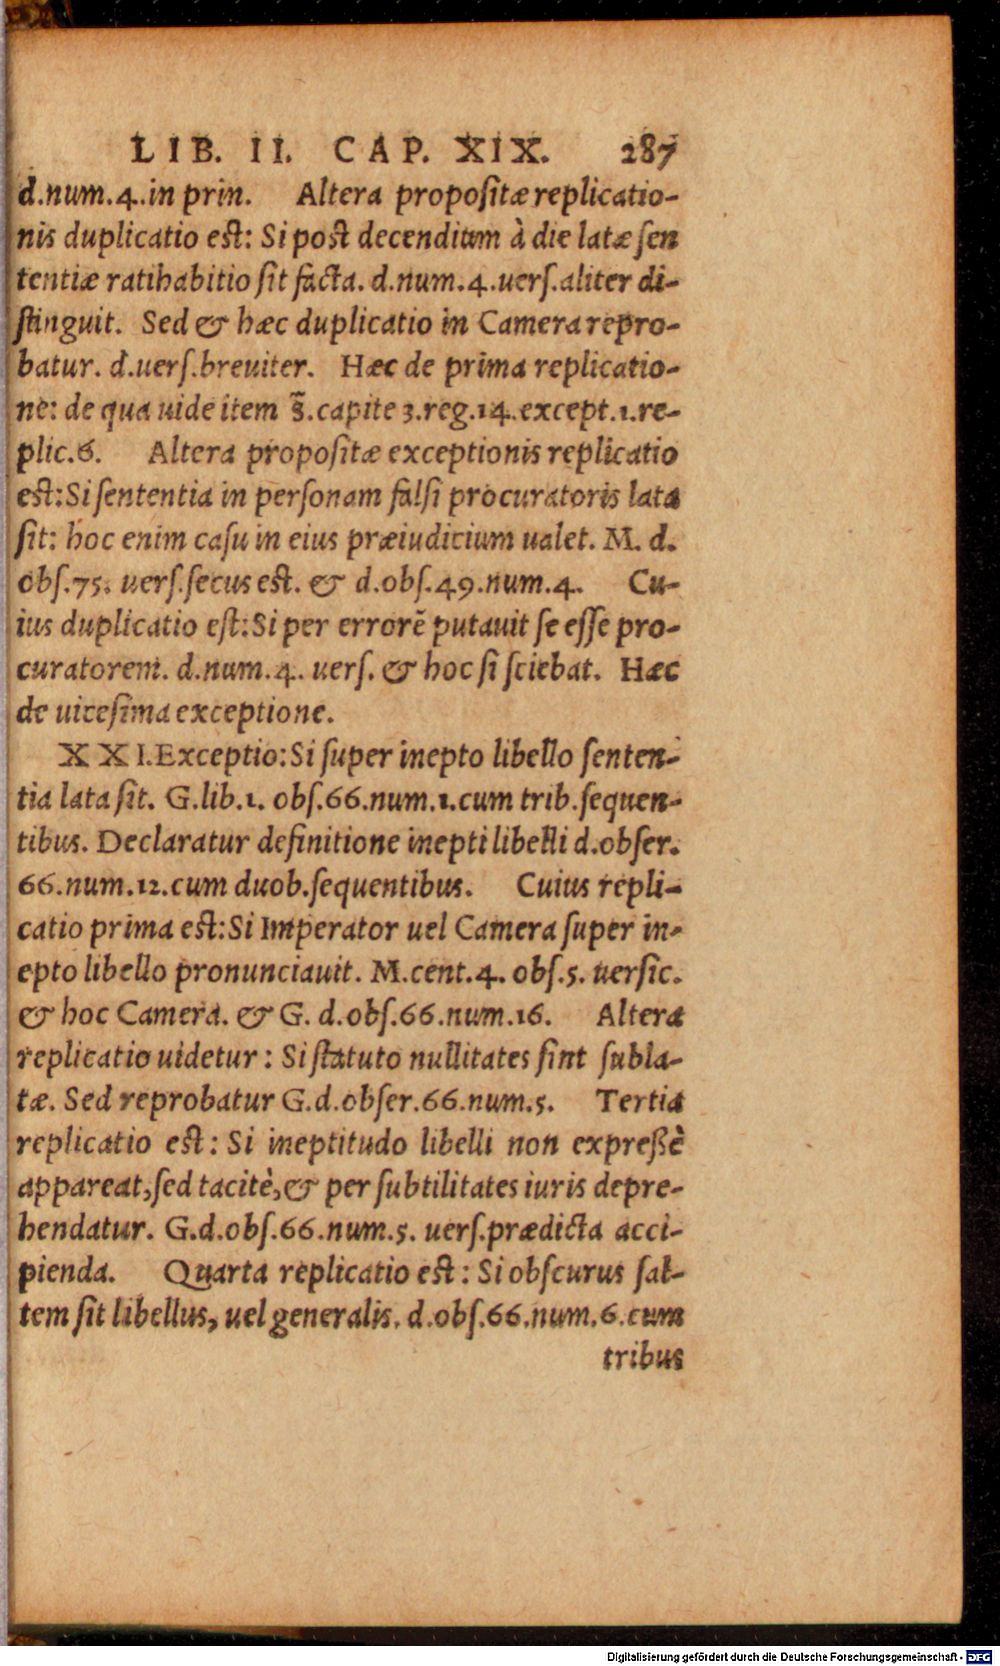 LIB. II. CAP. XIX. 287
d.num.4.in prin. Altera propositæ replicatio-
nis duplicatio est: Si post decendium à die latæ sen
tentiæ ratihabitio sit facta. d.num.4.uers.aliter di-
stinguit. Sed & hæc duplicatio in Camera repro-
batur. d.uers.breuiter. Hæc de prima replicatio-
ne: de qua uide item §.capite 3.reg.14.except.1.re-
plic.6. Altera propositæ exceptionis replicatio
est:Si sententia in personam falsi procuratoris lata
sit: hoc enim casu in eius præiudicium ualet. M. d.
obs.75. uers.secus est. & d.obs.49.num.4. Cu-
ius duplicatio est:Si per errorē putauit se esse pro-
curatorem. d.num.4. uers. & hoc si sciebat. Hæc
de uicesima exceptione.
XXI.Exceptio:Si super inepto libello senten-
tia lata sit. G.lib.1. obs.66.num.1.cum trib.sequen-
tibus. Declaratur definitione inepti libelli d.obser.
66.num.12.cum duob.sequentibus. Cuius repli-
catio prima est:Si Imperator uel Camera super in-
epto libello pronunciauit. M.cent.4. obs.5. uersic.
& hoc Camera. & G. d.obs.66.num.16. Altera
replicatio uidetur: Si statuto nullitates sint subla-
tæ. Sed reprobatur G.d.obser.66.num.5. Tertia
replicatio est: Si ineptitudo libelli non expreßè
appareat,sed tacitè,& per subtilitates iuris depre-
hendatur. G.d.obs.66.num.5. uers.prædicta acci-
pienda. Quarta replicatio est: Si obscurus sal-
tem sit libellus, uel generalis. d.obs.66.num.6.cum
tribus
Digitalisierung gefördert durch die Deutsche Forschungsgemeinschaft - DFG